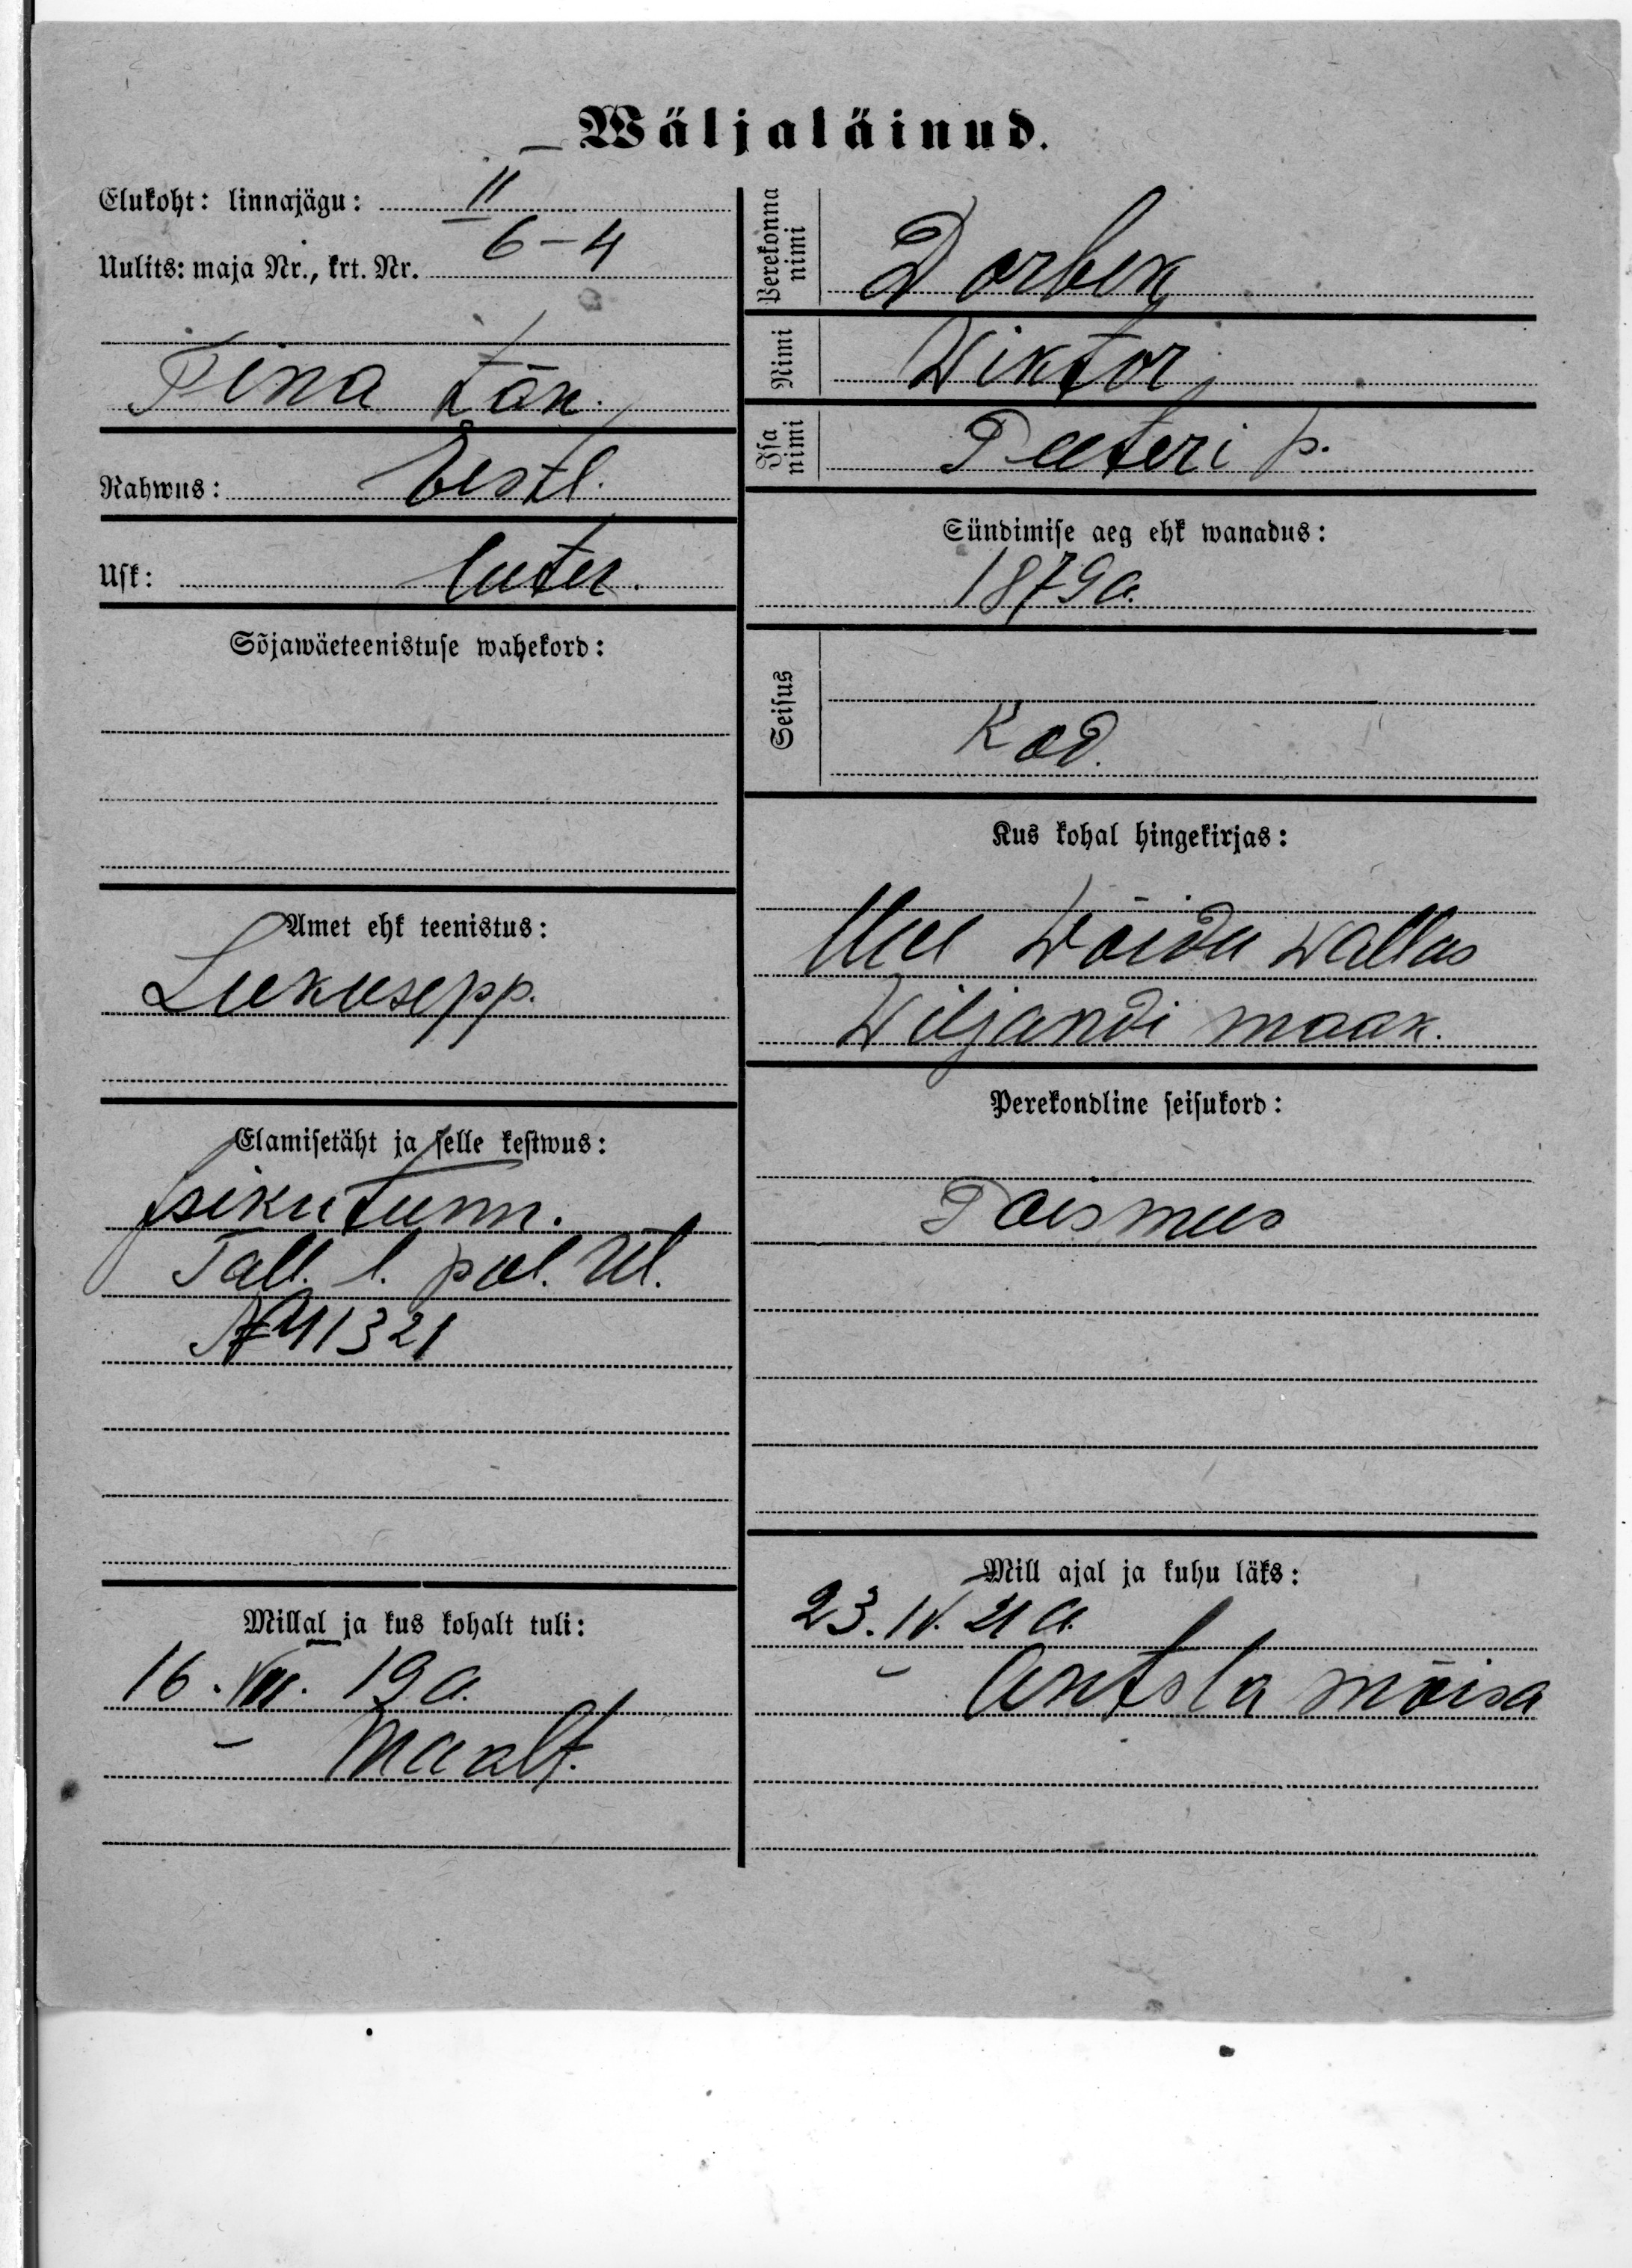 Wäljaläinud.
Elukoht: linnajägu: II
Uulits: maja Nr., krt. Nr. 6-4
Tina tän.
Rahwus: Eestl.
Usk: luter.
Sõjawäeteenistuse wahekord:
Amet ehk teenistus:
Lukusepp.
Elamisetäht ja selle kestwus:
Isikutunn.
Tall. l. pol. Ül.
№ 41321
Millal ja kus kohalt tuli:
16. VIII. 19 a.
– Maalt.
Perekonna nimi Dorbek
Nimi Wiktor
Isa nimi Peeteri p.
Sündimise aeg ehk wanadus:
1879 a.
Seisus
Kod.
Kus kohal hingekirjas:
Uue Wõidu wallas
Wiljandi maak.
Perekondline seisukord:
Poismees
Mill ajal ja kuhu läks:
23. IV. 21 a.
– Antsla mõisa